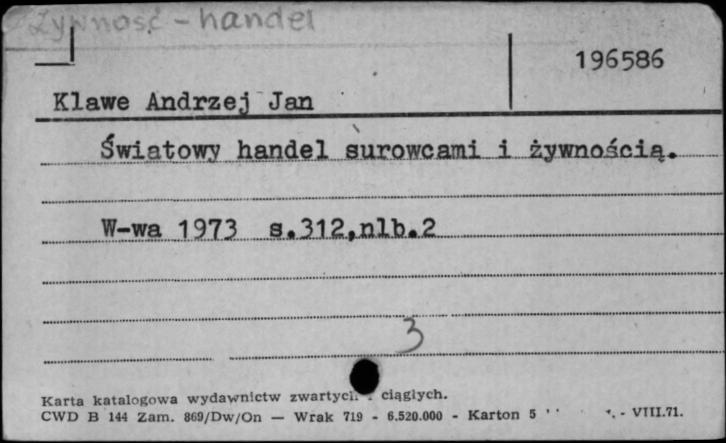 Żywność - handel
196586
Klawe Andrzej Jan
Światowy handel surowcami i żywnością.
W-wa 1973 s.312,nlb.2
3
Karta katalogowa wydawnictw zwartych ciągłych.
CWD B 144 Zam. 869/Dw/On — Wrak 719 - 6.520.000 - Karton 5 - VIII.71.